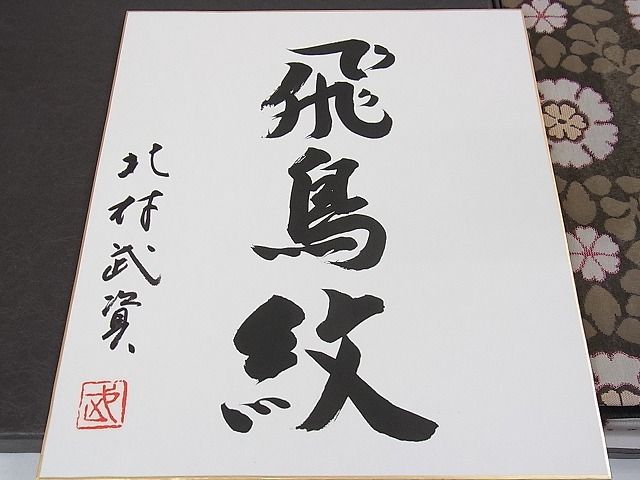 飛鳥紋
北村武資
武